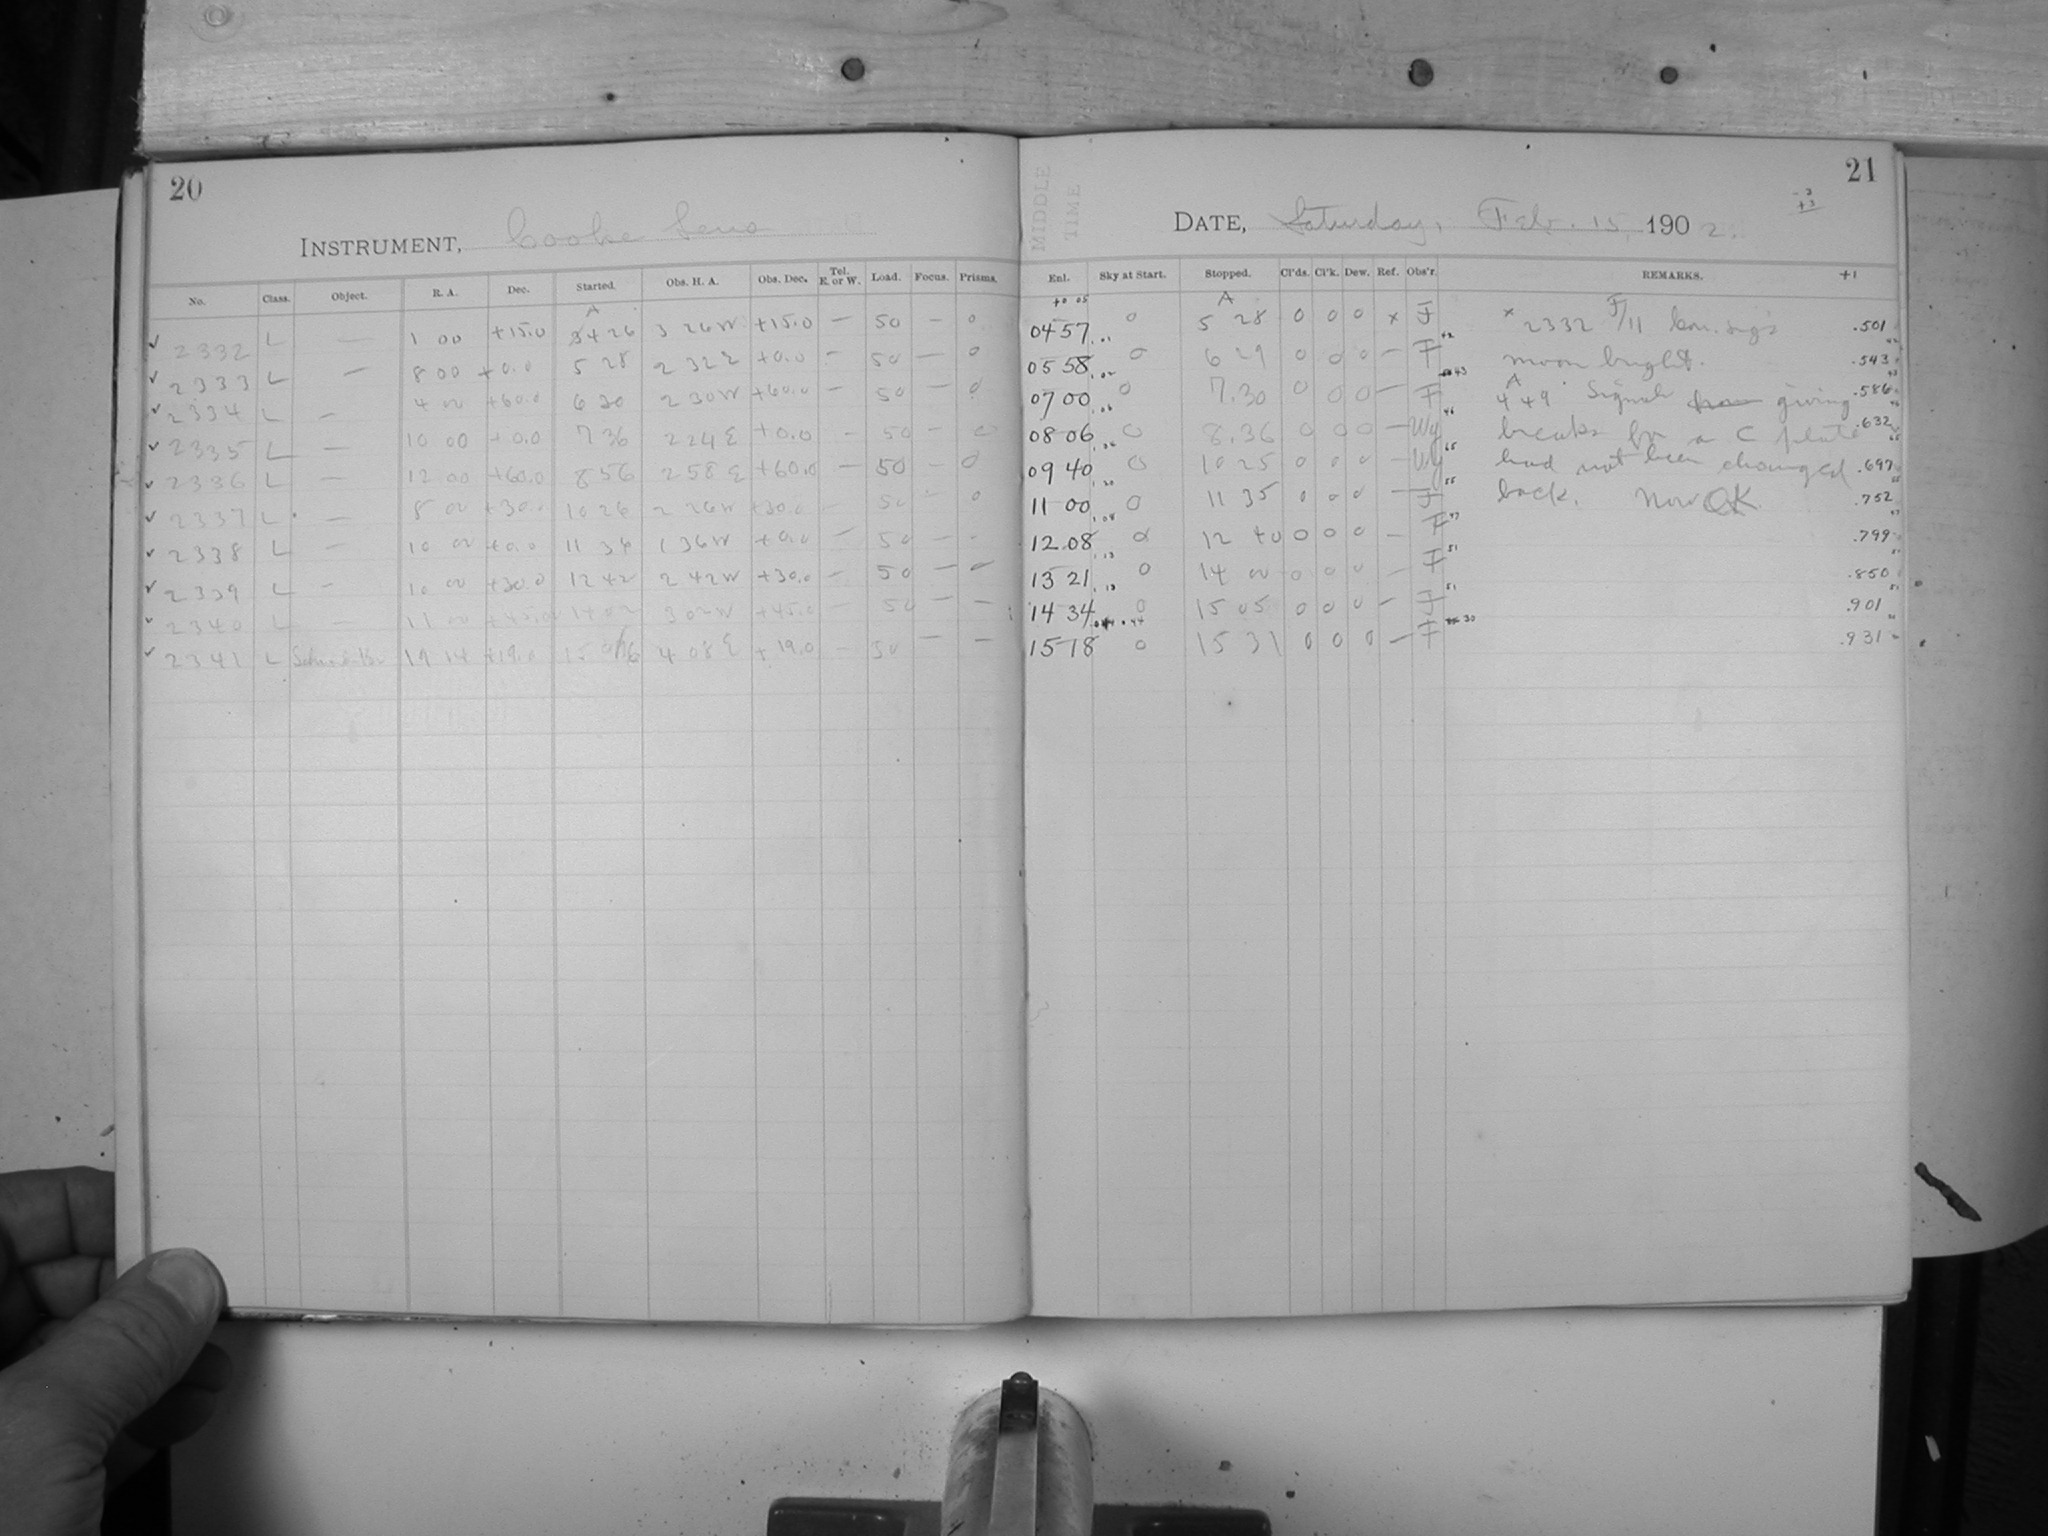 20
INSTRUMENT, Cooke Lens
No. Class. Object. R. A. Dec. Started. Obs. H. A. Obs. Dec. Tel. E. or W. Load. Focus. Prisms.
A
✓ 2332 L — 1 00 +15.0 3426 3 26W +15.0 — 50 — 0
✓ 2333 L — 8 00 +0.0 5 28 2 32E +0.0 — 50 — 0
✓ 2334 L — 4 00 +60.0 6 30 2 30W +60.0 — 50 — 0
✓ 2335 L — 10 00 +0.0 7 36 2 24E +0.0 — 50 — 0
✓ 2336 L — 12 00 +60.0 8 56 2 58E +60.0 — 50 — 0
✓ 2337 L — 8 00 +30.0 10 26 2 26W +30.0 — 50 — 0
✓ 2338 L — 10 00 +0.0 11 36 1 36W +0.0 — 50 — -
✓ 2339 L — 10 00 +30.0 12 42 2 42W +30.0 — 50 — —
✓ 2340 L — 11 00 +45.0 14 02 3 02W +45.0 — 50 — —
✓ 2341 L 19 14 +19.0 4 08E +19.0 — 50 — —
21
MIDDLE TIME
DATE, Saturday, Feb. 15, 1902.
-3
+3
Enl. Sky at Start. Stopped. Cl'ds. Cl'k. Dew. Ref. Obs'r. REMARKS. +1
+0 05 A
04 57 0 5 28 0 0 0 x F x 2332 F/11 .501
05 58 0 6 29 0 0 0 — F moon bright. .543
07 00 0 7.30 0 0 0 — F 4 49 A Signals giving .586
08 06 0 8.36 0 0 0 — Wy breaks for a C plate .632
09 40 0 10 25 0 0 0 — Wy had not been changed .697
11 00 0 11 35 0 0 0 — F back. Now OK. .752
12.08 0 12 40 0 0 0 — F .799
13 21 0 14 00 0 0 0 — F .850
14 34 0 15 05 0 0 0 — F .901
15 18 0 15 31 0 0 0 — F .931